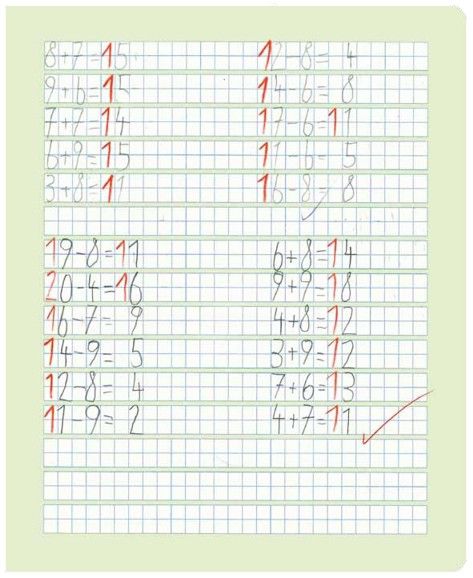 8+7=15 12-8= 4
9+6=15 14-6= 8
7+7=14 17-6=11
6+9=15 11-6= 5
3+8=11 16-8= 8
19-8=11 6+8=14
20-4=16 9+9=18
16-7= 9 4+8=12
14-9= 5 3+9=12
12-8= 4 7+6=13
11-9= 2 4+7=11